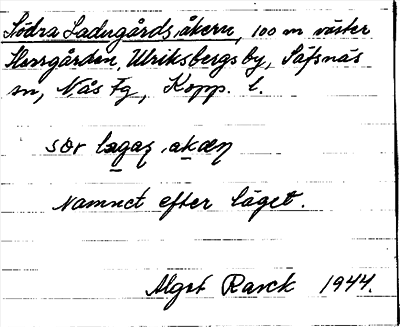 Södra Ladugårdsåkern, 100 m väster
Herrgården, Ulriksbergs by, Säfsnäs
sn, Nås Fg, Kopp. l.
Namnet efter läget.
Algot Rasck 1944.